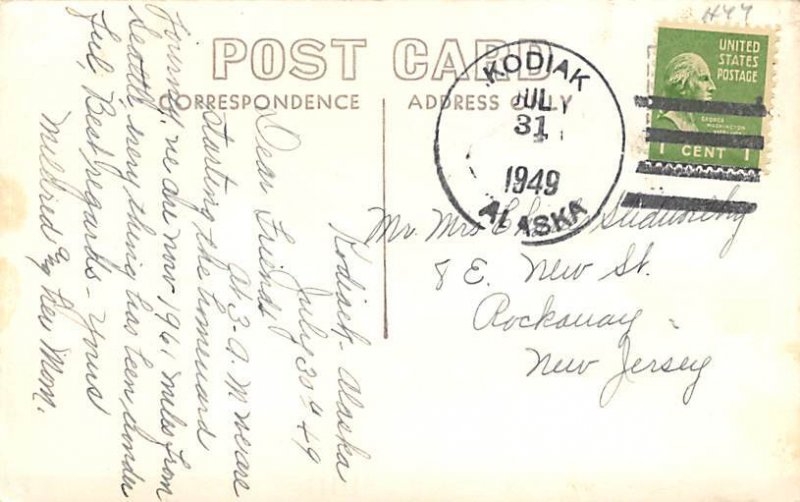 H44
POST CARD
CORRESPONDENCE
ADDRESS ONLY
KODIAK
JULY
31
1949
ALASKA
UNITED
STATES
POSTAGE
GEORGE
WASHINGTON
1 CENT 1
Kodiack - Alaska
July 30th 49
Dear Friends
At 3-A.M we are
starting the homeward
Journey, we are now 1961 miles from
Seattle every thing has been wonder
ful, Best regards - Yours
Mildred and Her Mom.
Mr. Mrs
8 E. New St.
Rockaway -
New Jersey